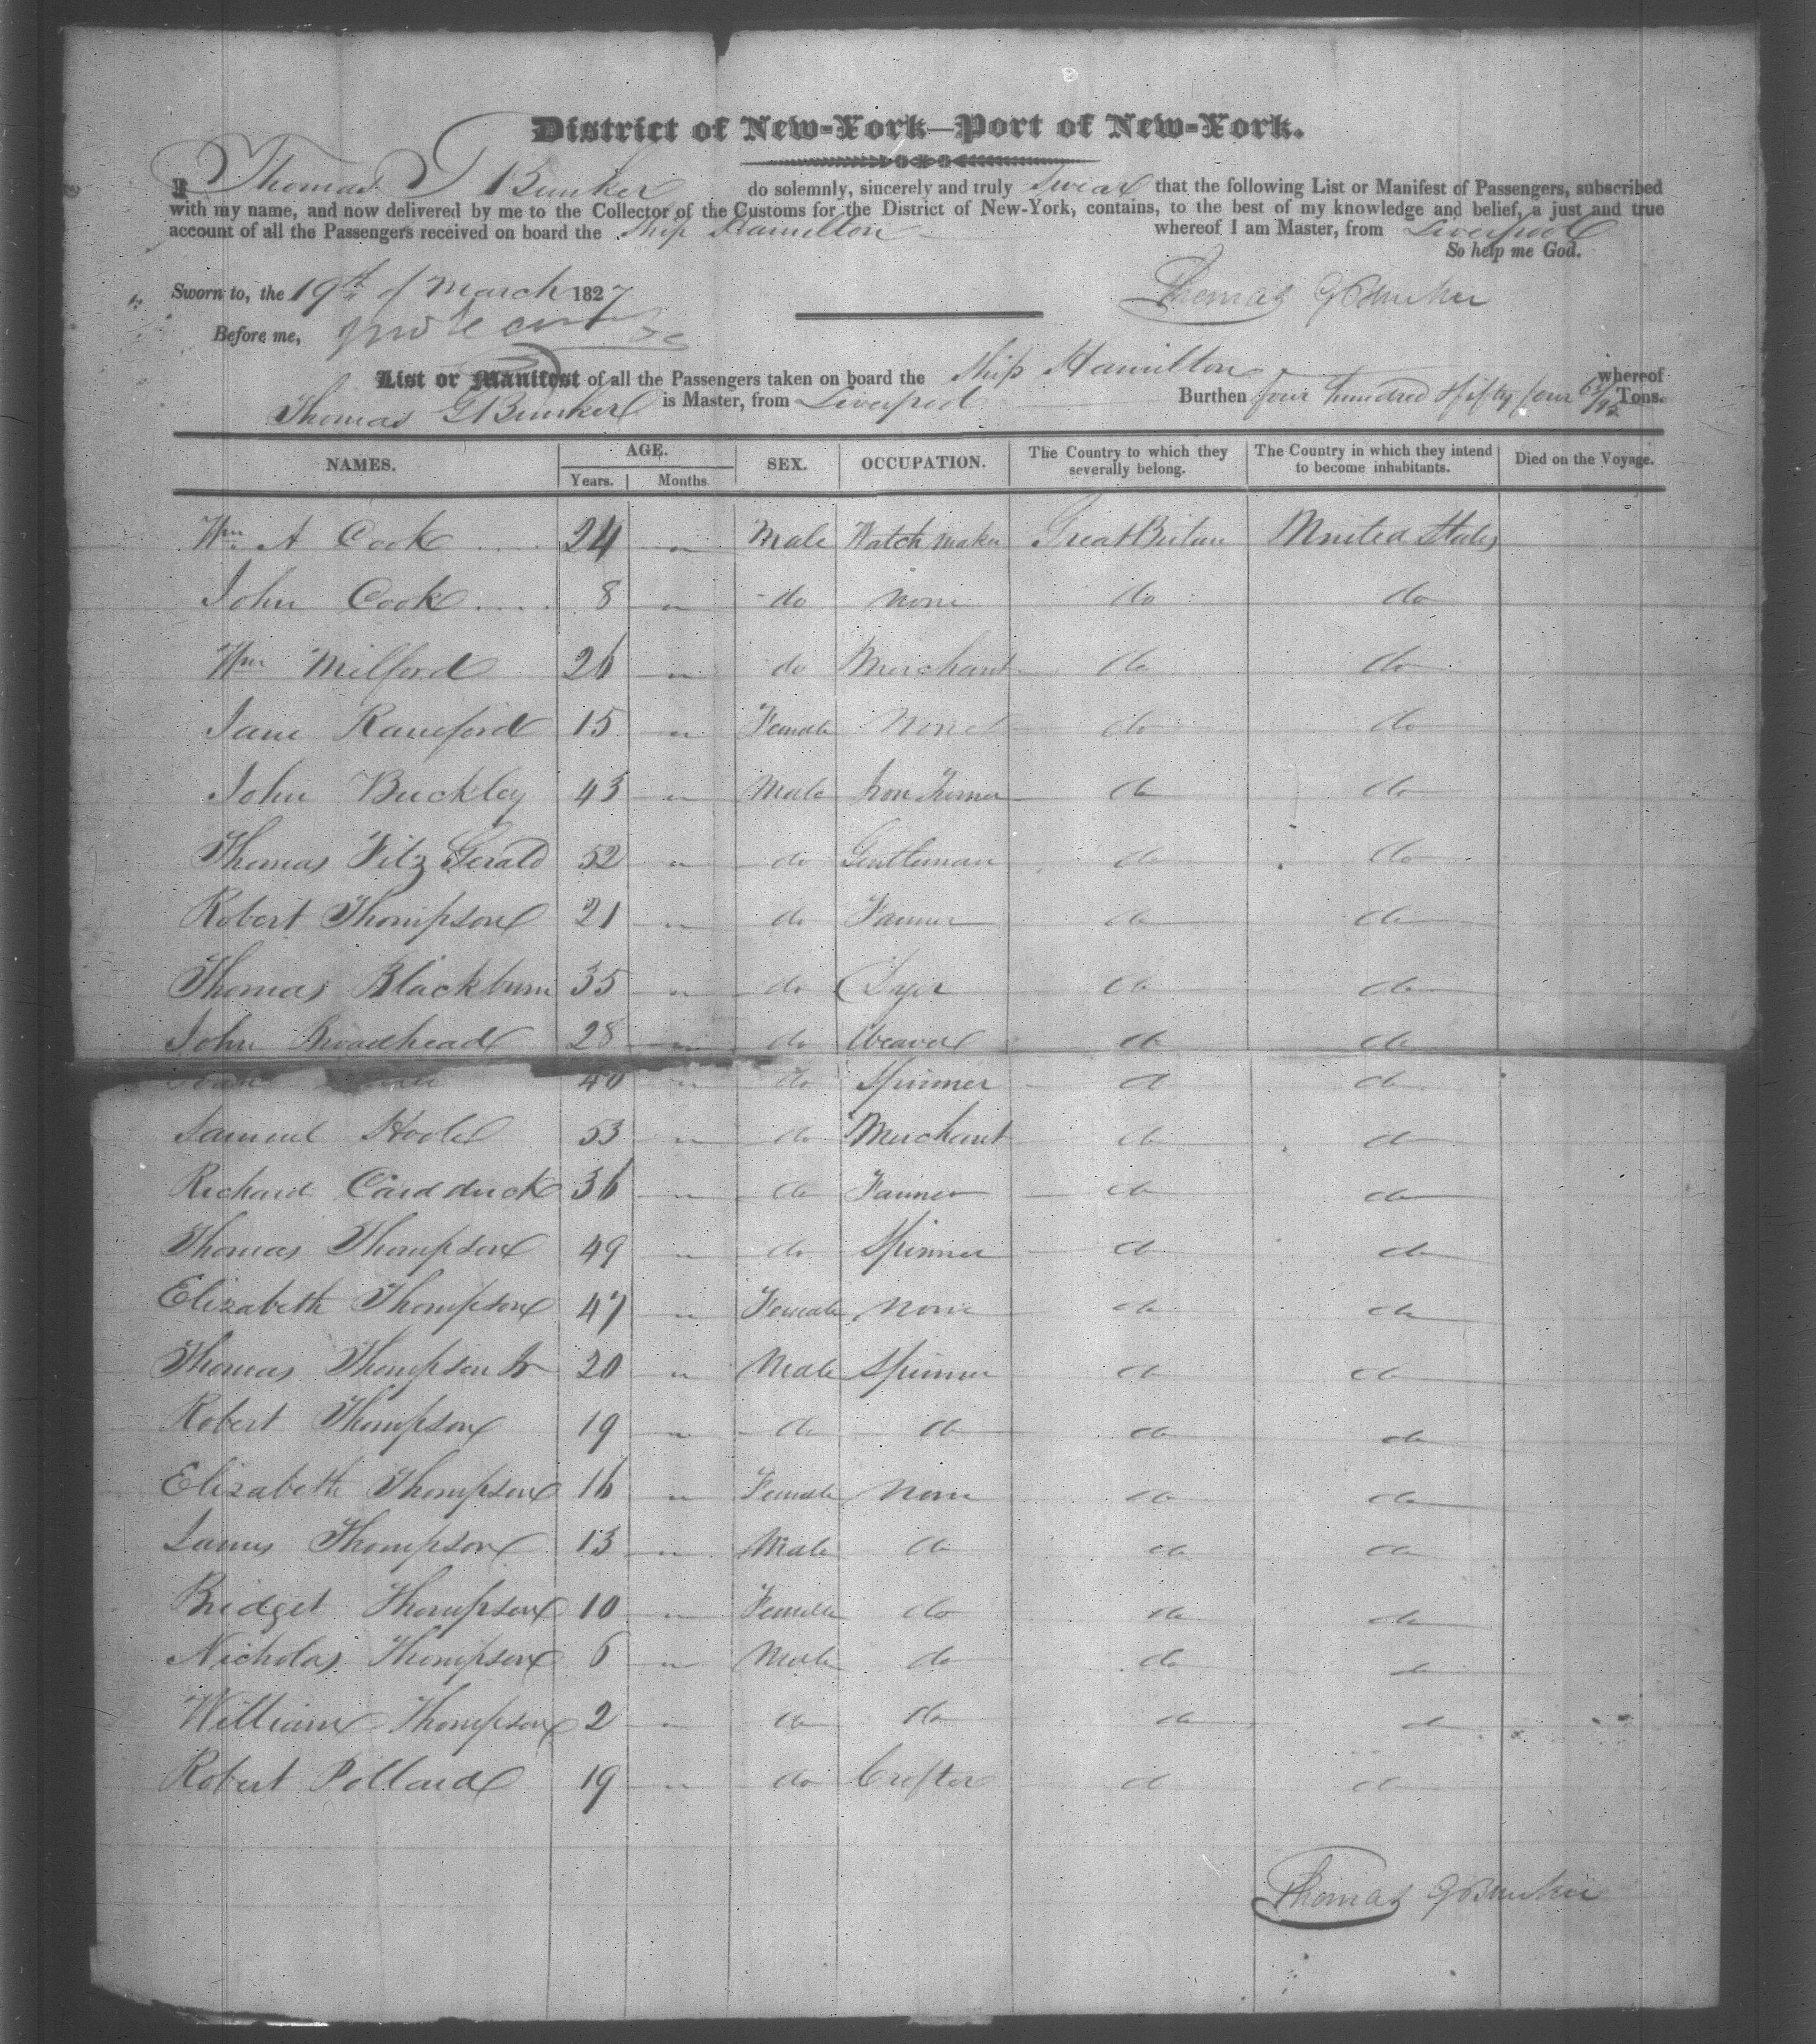 District of New-York—Port of New-York.
I Thomas G Bunker do solemnly, sincerely and truly Swear that the following List or Manifest of Passengers, subscribed
with my name, and now delivered by me to the Collector of the Customs for the District of New-York, contains, to the best of my knowledge and belief, a just and true
account of all the Passengers received on board the Ship Hamilton whereof I am Master, from Liverpool
So help me God.
Sworn to, the 19th of March 1827
Thomas G Bunker
Before me,
List or Manifest of all the Passengers taken on board the Ship Hamilton whereof
Thomas G Bunker is Master, from Liverpool Burthen four hundred & fifty four Tons.
NAMES. AGE. Years. Months SEX. OCCUPATION. The Country to which they severally belong. The Country in which they intend to become inhabitants. Died on the Voyage.
Wm A Cook 24 " Male Watch maker Great Britain United States
John Cook 8 " do None do do
Wm Milford 26 " do Merchant do do
Jane 15 " Female None do do
John Buckley 43 " Male Iron Turner do do
Thomas Fitz Gerald 52 " do Gentleman do do
Robert Thompson 21 " do Farmer do do
Thomas Blackburn 35 " do Dyer do do
John Broadhead 28 " do Weaver do do
40 " do Spinner do do
Samuel 53 " do Merchant do do
Richard Caradduck 36 " do Farmer do do
Thomas Thompson 49 " do Spinner do do
Elizabeth Thompson 47 " Female None do do
Thomas Thompson Jr 20 " Male Spinner do do
Robert Thompson 19 " do do do do
Elizabeth Thompson 16 " Female None do do
James Thompson 13 " Male do do do
Bridget Thompson 10 " Female do do do
Nicholas Thompson 6 " Male do do do
William Thompson 2 " do do do do
Robert Pollard 19 " do Crofter do do
Thomas G Bunker